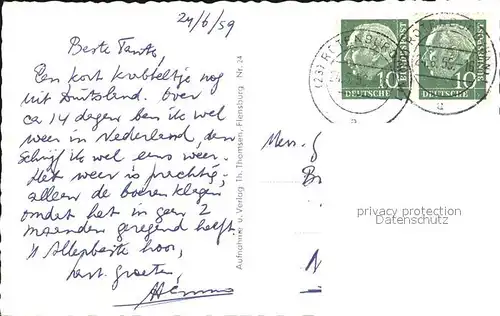 24/6/59
Beste Tante,
Een kort krabbeltje nog
uit Duitsland. Over
ca 14 dagen ben ik wel
weer in Nederland, dan
schrijf ik wel eens weer.
Het weer is prachtig,
alleen de boeren klagen
omdat het in geen 2
maanden geregend heeft.
'n Allerbeste hoor,
hart. groeten,
Aufnahme u. Verlag Th. Thomsen, Flensburg Nr. 24
(23) ROTENBURG
10
DEUTSCHE
BUNDESPOST
10
DEUTSCHE
BUNDESPOST
Mej.
privacy protection
Datenschutz